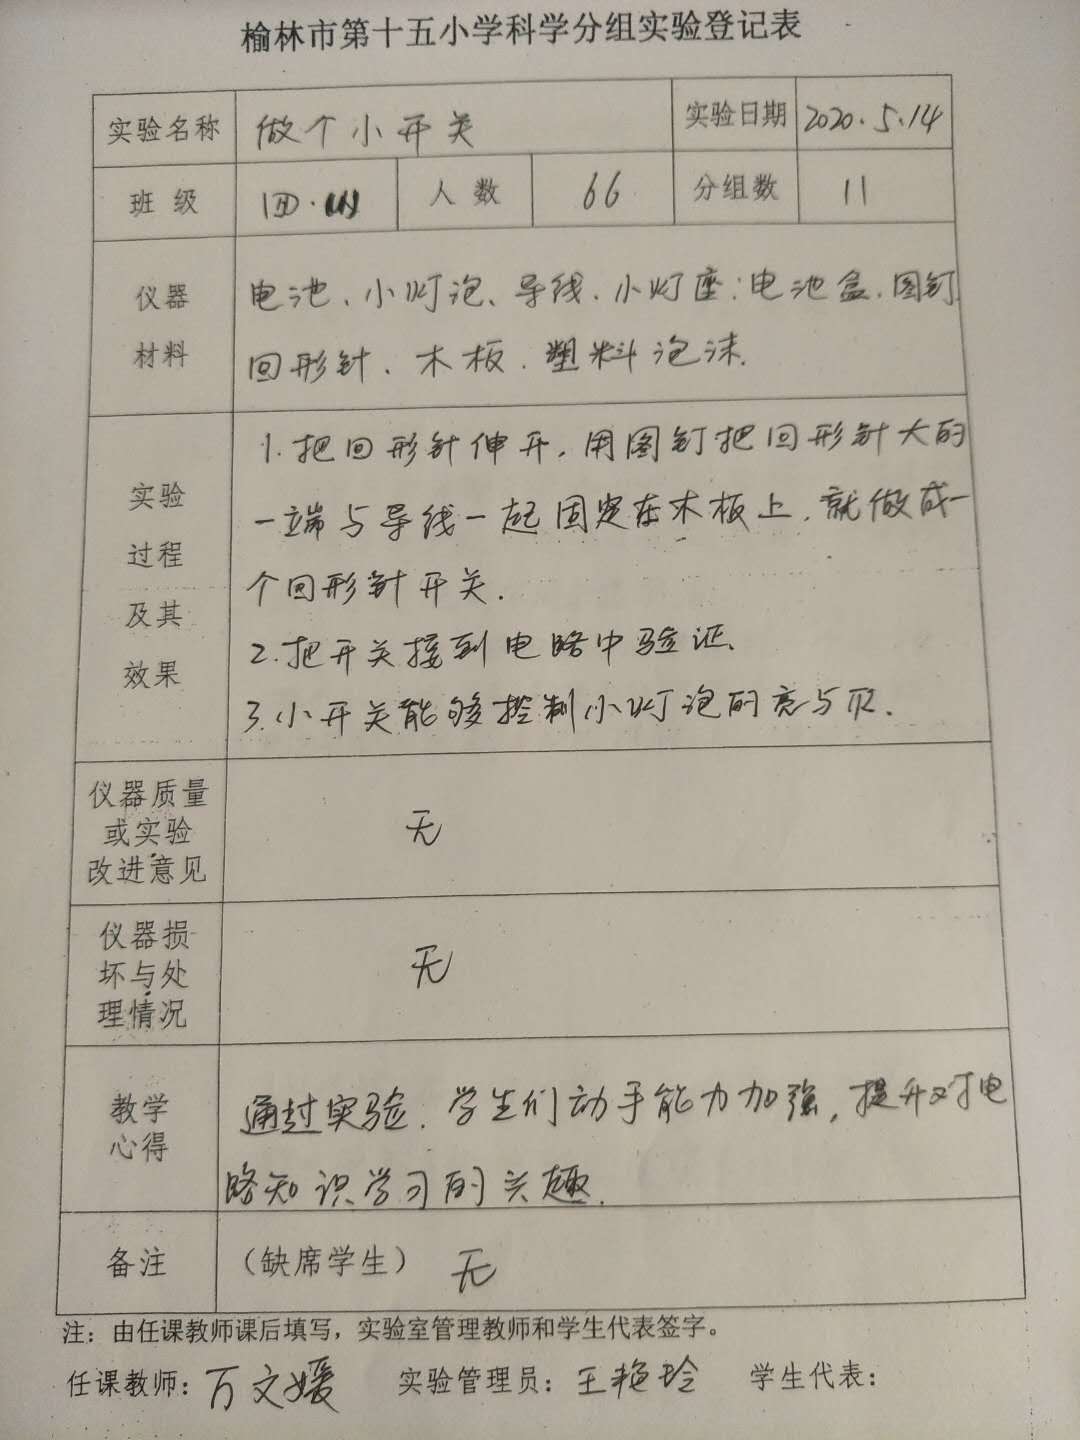 榆林市第十五小学科学分组实验登记表
实验名称 做个小开关 实验日期 2020.5.14
班级 四· 人数 66 分组数 11
仪器
材料
电池、小灯泡、导线、小灯座、电池盒、图钉
回形针、木板、塑料泡沫.
实验
过程
及其
效果
1.把回形针伸开,用图钉把回形针大的
一端与导线一起固定在木板上,就做成一
个回形针开关.
2.把开关接到电路中验证.
3.小开关能够控制小灯泡的亮与灭.
仪器质量
或实验
改进意见
无
仪器损
坏与处
理情况
无
教学
心得
通过实验.学生们动手能力加强,提升对电
路知识学习的兴趣.
备注 (缺席学生) 无
注:由任课教师课后填写,实验室管理教师和学生代表签字。
任课教师:万文媛 实验管理员:王艳玲 学生代表: